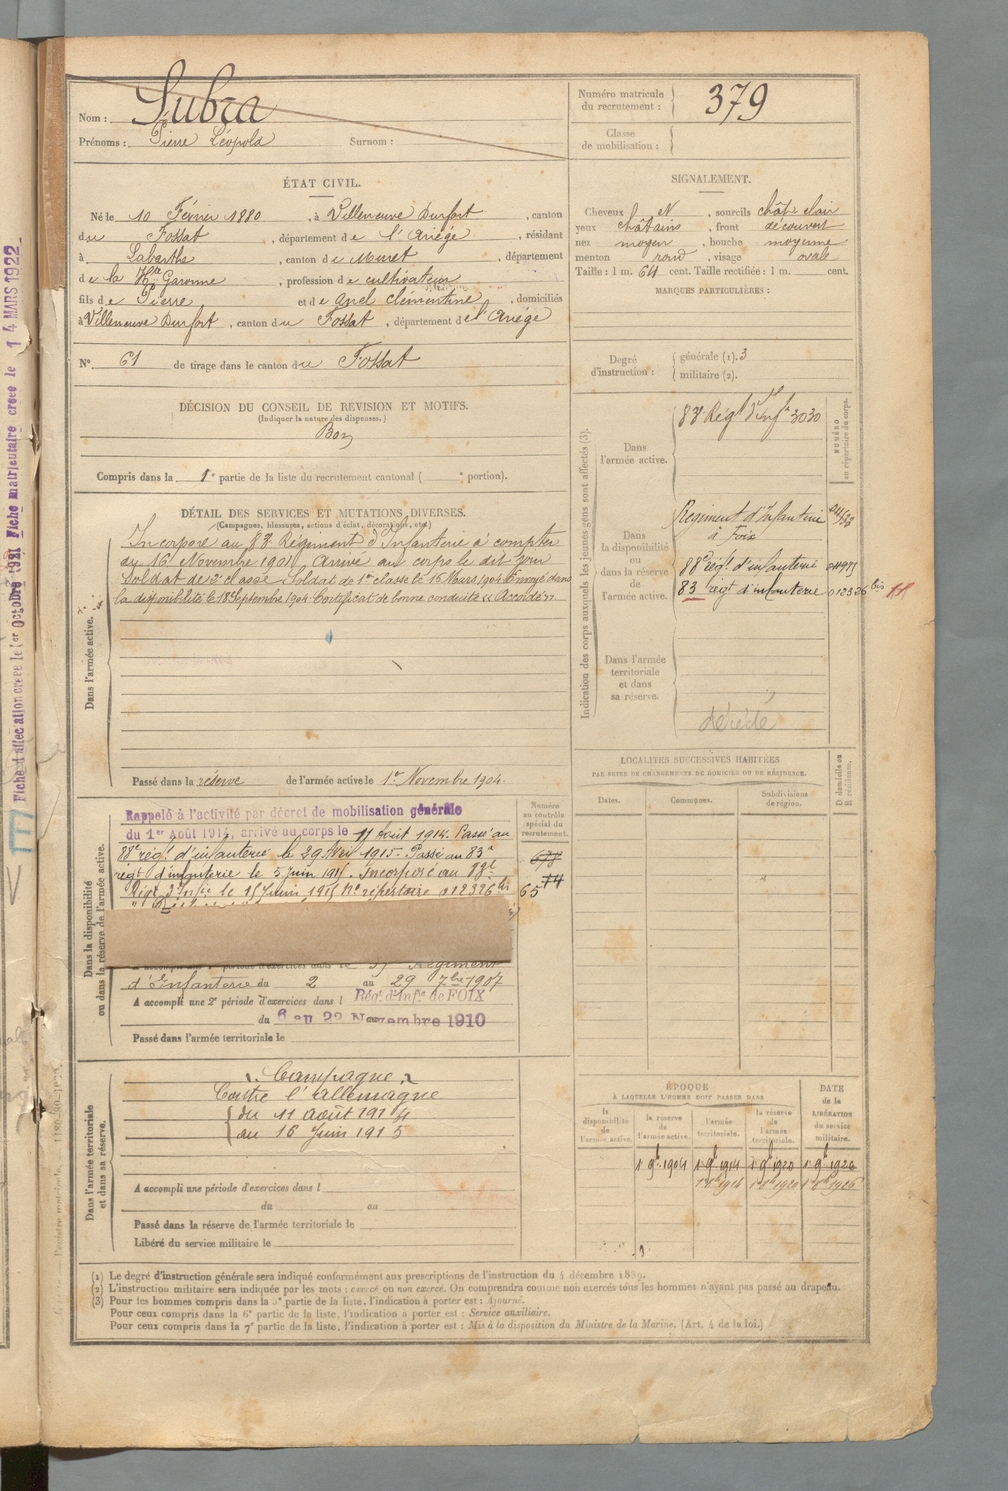 Nom : Subra
Prénoms : Pierre Léopold Surnom :
Numéro matricule du recrutement : 379
Classe de mobilisation :
ÉTAT CIVIL.
Né le 10 Février 1880, à Villeneuve Durfort, canton
du Fossat, département de l'Ariége, résidant
à Labarthe, canton de Muret, département
de la Hte Garonne, profession de cultivateur
fils de Pierre et de Anel Clémentine, domiciliés
à Villeneuve Durfort, canton du Fossat, département de l'Ariége
No 61 de tirage dans le canton du Fossat
SIGNALEMENT.
Cheveux, sourcils chât. clair
yeux châtains, front découvert
nez moyen, bouche moyenne
menton rond, visage ovale
Taille : 1 m. 64 cent. Taille rectifiée : 1 m. cent.
MARQUES PARTICULIÈRES :
Degré d'instruction : générale (1). 3
militaire (2).
DÉCISION DU CONSEIL DE REVISION ET MOTIFS.
(Indiquer la nature des dispenses.)
Bon
Compris dans la 1e partie de la liste du recrutement cantonal ( e portion).
DÉTAIL DES SERVICES ET MUTATIONS DIVERSES.
(Campagnes, blessures, actions d'éclat, décorations, etc.)
Dans l'armée active.
Incorporé au 88e Régiment d'Infanterie à compter
du 16 Novembre 1901. Arrivé au corps le dit jour
Soldat de 2e classe. Soldat de 1re classe le 16 Mars 1904 Envoyé dans
la disponibilité le 18 Septembre 1904 Certificat de bonne conduite « Accordé ».
Passé dans la réserve de l'armée active le 1er Novembre 1904.
Indication des corps auxquels les jeunes gens sont affectés (3).
NUMÉRO au répertoire du corps.
Dans l'armée active.
88e Régt d'Infie 3030
Dans la disponibilité ou dans la réserve de l'armée active.
Régiment d'Infanterie
à Foix
88e régt d'infanterie
83 régt d'infanterie 012326 bis
Dans l'armée territoriale et dans sa réserve.
décédé
Dans la disponibilité ou dans la réserve de l'armée active.
Rappelé à l'activité par décret de mobilisation générale
du 1er Août 1914, arrivé au corps le 11 Août 1914. Passé au
88e régt d'infanterie le 29 Mai 1915. Passé au 83e
régt d'infanterie le 5 Juin 1915. Incorporé au 88e
Régt d'Infie le 15 Juin 1915 No répertoire 012326 bis
Régiment
d'Infanterie du 2 au 29 7bre 1907
A accompli une 2e période d'exercices dans l Régt d'Infie de FOIX
du 6 au 22 Novembre 1910
Passé dans l'armée territoriale le
Numéro au contrôle spécial du recrutement.
678
74
65
LOCALITÉS SUCCESSIVES HABITÉES
PAR SUITE DE CHANGEMENTS DE DOMICILE OU DE RÉSIDENCE.
Dates. Communes. Subdivisions de région. D domicile ou R résidence.
Dans l'armée territoriale et dans sa réserve.
Campagne
Contre l'Allemagne
du 11 août 1914
au 16 Juin 1915
A accompli une période d'exercices dans l
du au
Passé dans la réserve de l'armée territoriale le
Libéré du service militaire le
ÉPOQUE
À LAQUELLE L'HOMME DOIT PASSER DANS
la disponibilité de l'armée active. la réserve de l'armée active. l'armée territoriale. la réserve de l'armée territoriale.
DATE de la LIBÉRATION du service militaire.
1r 9b 1904 1r 9b 1914 1r 9b 1920 1r 9b 1926
(1) Le degré d'instruction générale sera indiqué conformément aux prescriptions de l'instruction du 4 décembre 1889.
(2) L'instruction militaire sera indiquée par les mots : exercé ou non exercé. On comprendra comme non exercés tous les hommes n'ayant pas passé au drapeau.
(3) Pour les hommes compris dans la 5e partie de la liste, l'indication à porter est : Ajourné.
Pour ceux compris dans la 6e partie de la liste, l'indication à porter est : Service auxiliaire.
Pour ceux compris dans la 7e partie de la liste, l'indication à porter est : Mis à la disposition du Ministre de la Marine. (Art. 4 de la loi.)
Fiche d'affectation créée le 1er Octobre 1921 Fiche matriculaire créée le 1 4 MARS 1922